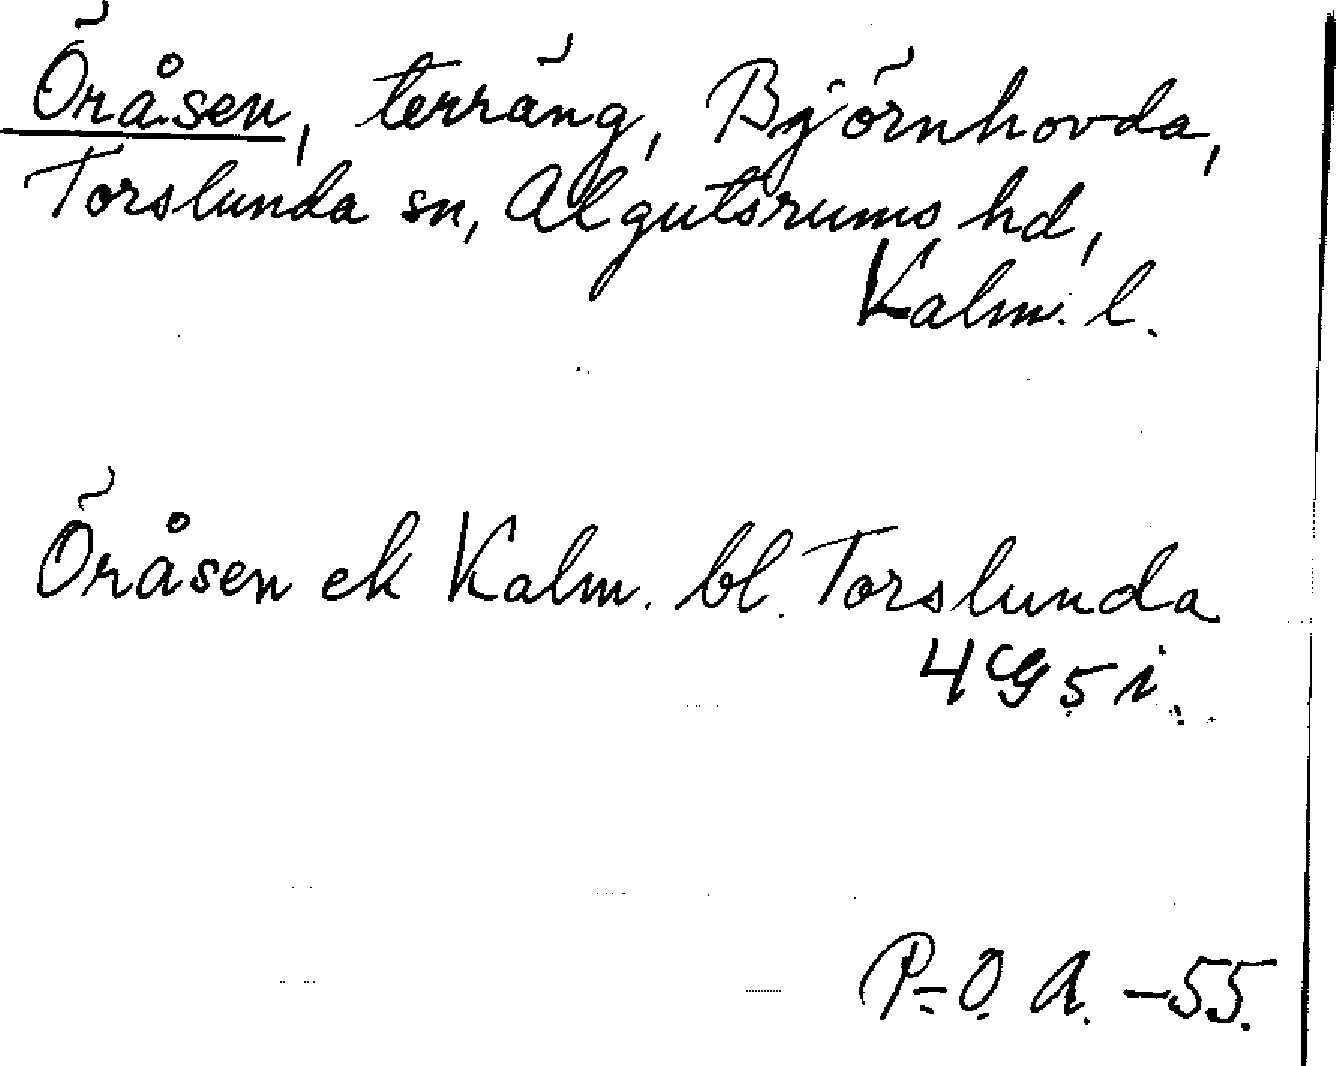 Öråsen, terräng, Björnhovda,
Torslunda sn, Algutsrums hd,
Kalm. l.
Öråsen ek Kalm. bl. Torslunda
4G5i.
P-O. A. -55.